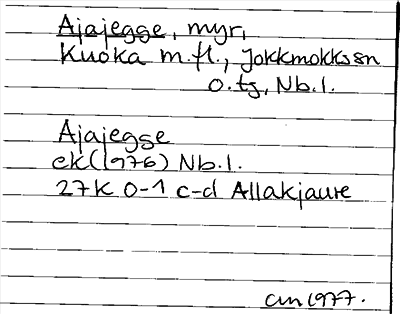 Ajajegge, myr,
Kuoka m.fl., Jokkmokks sn
o. tg, Nb.l.
Ajajegge
ek(1976) Nb.l.
27K 0-1 c-d Allakjaure
am 1977.